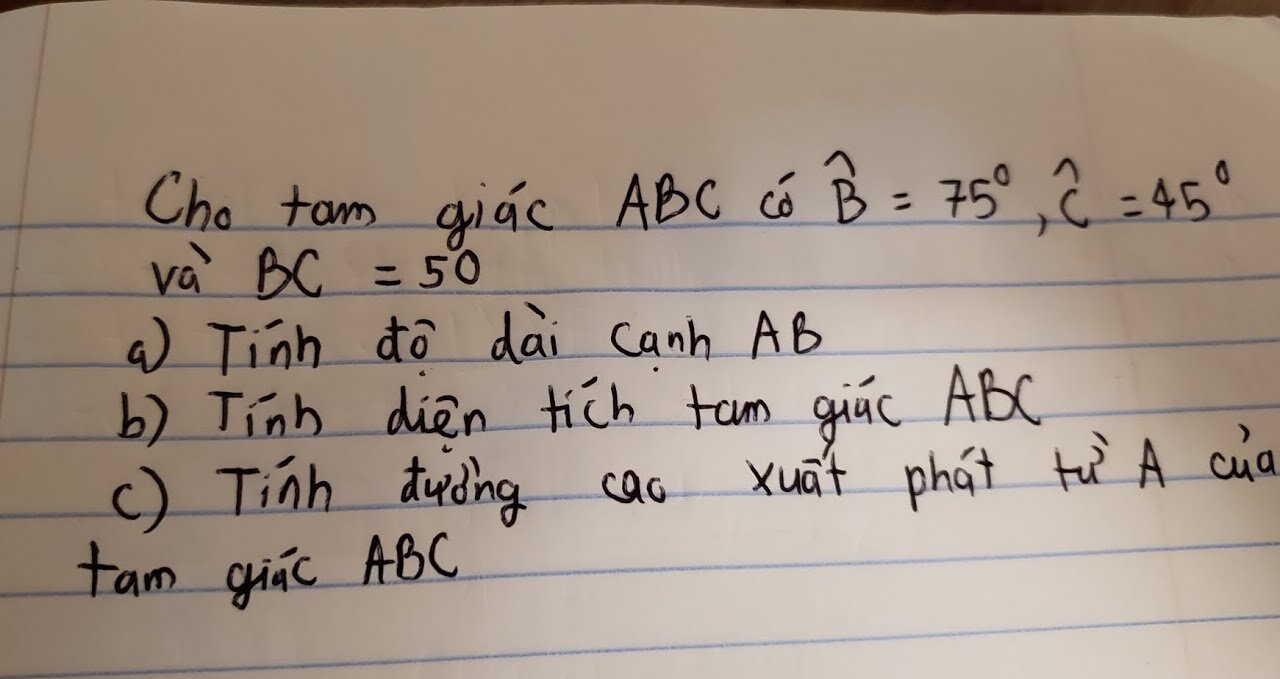 Cho tam giác ABC có B̂ = 75⁰, Ĉ = 45⁰
và BC = 50
a) Tính độ dài cạnh AB
b) Tính diện tích tam giác ABC
c) Tính đường cao xuất phát từ A của
tam giác ABC